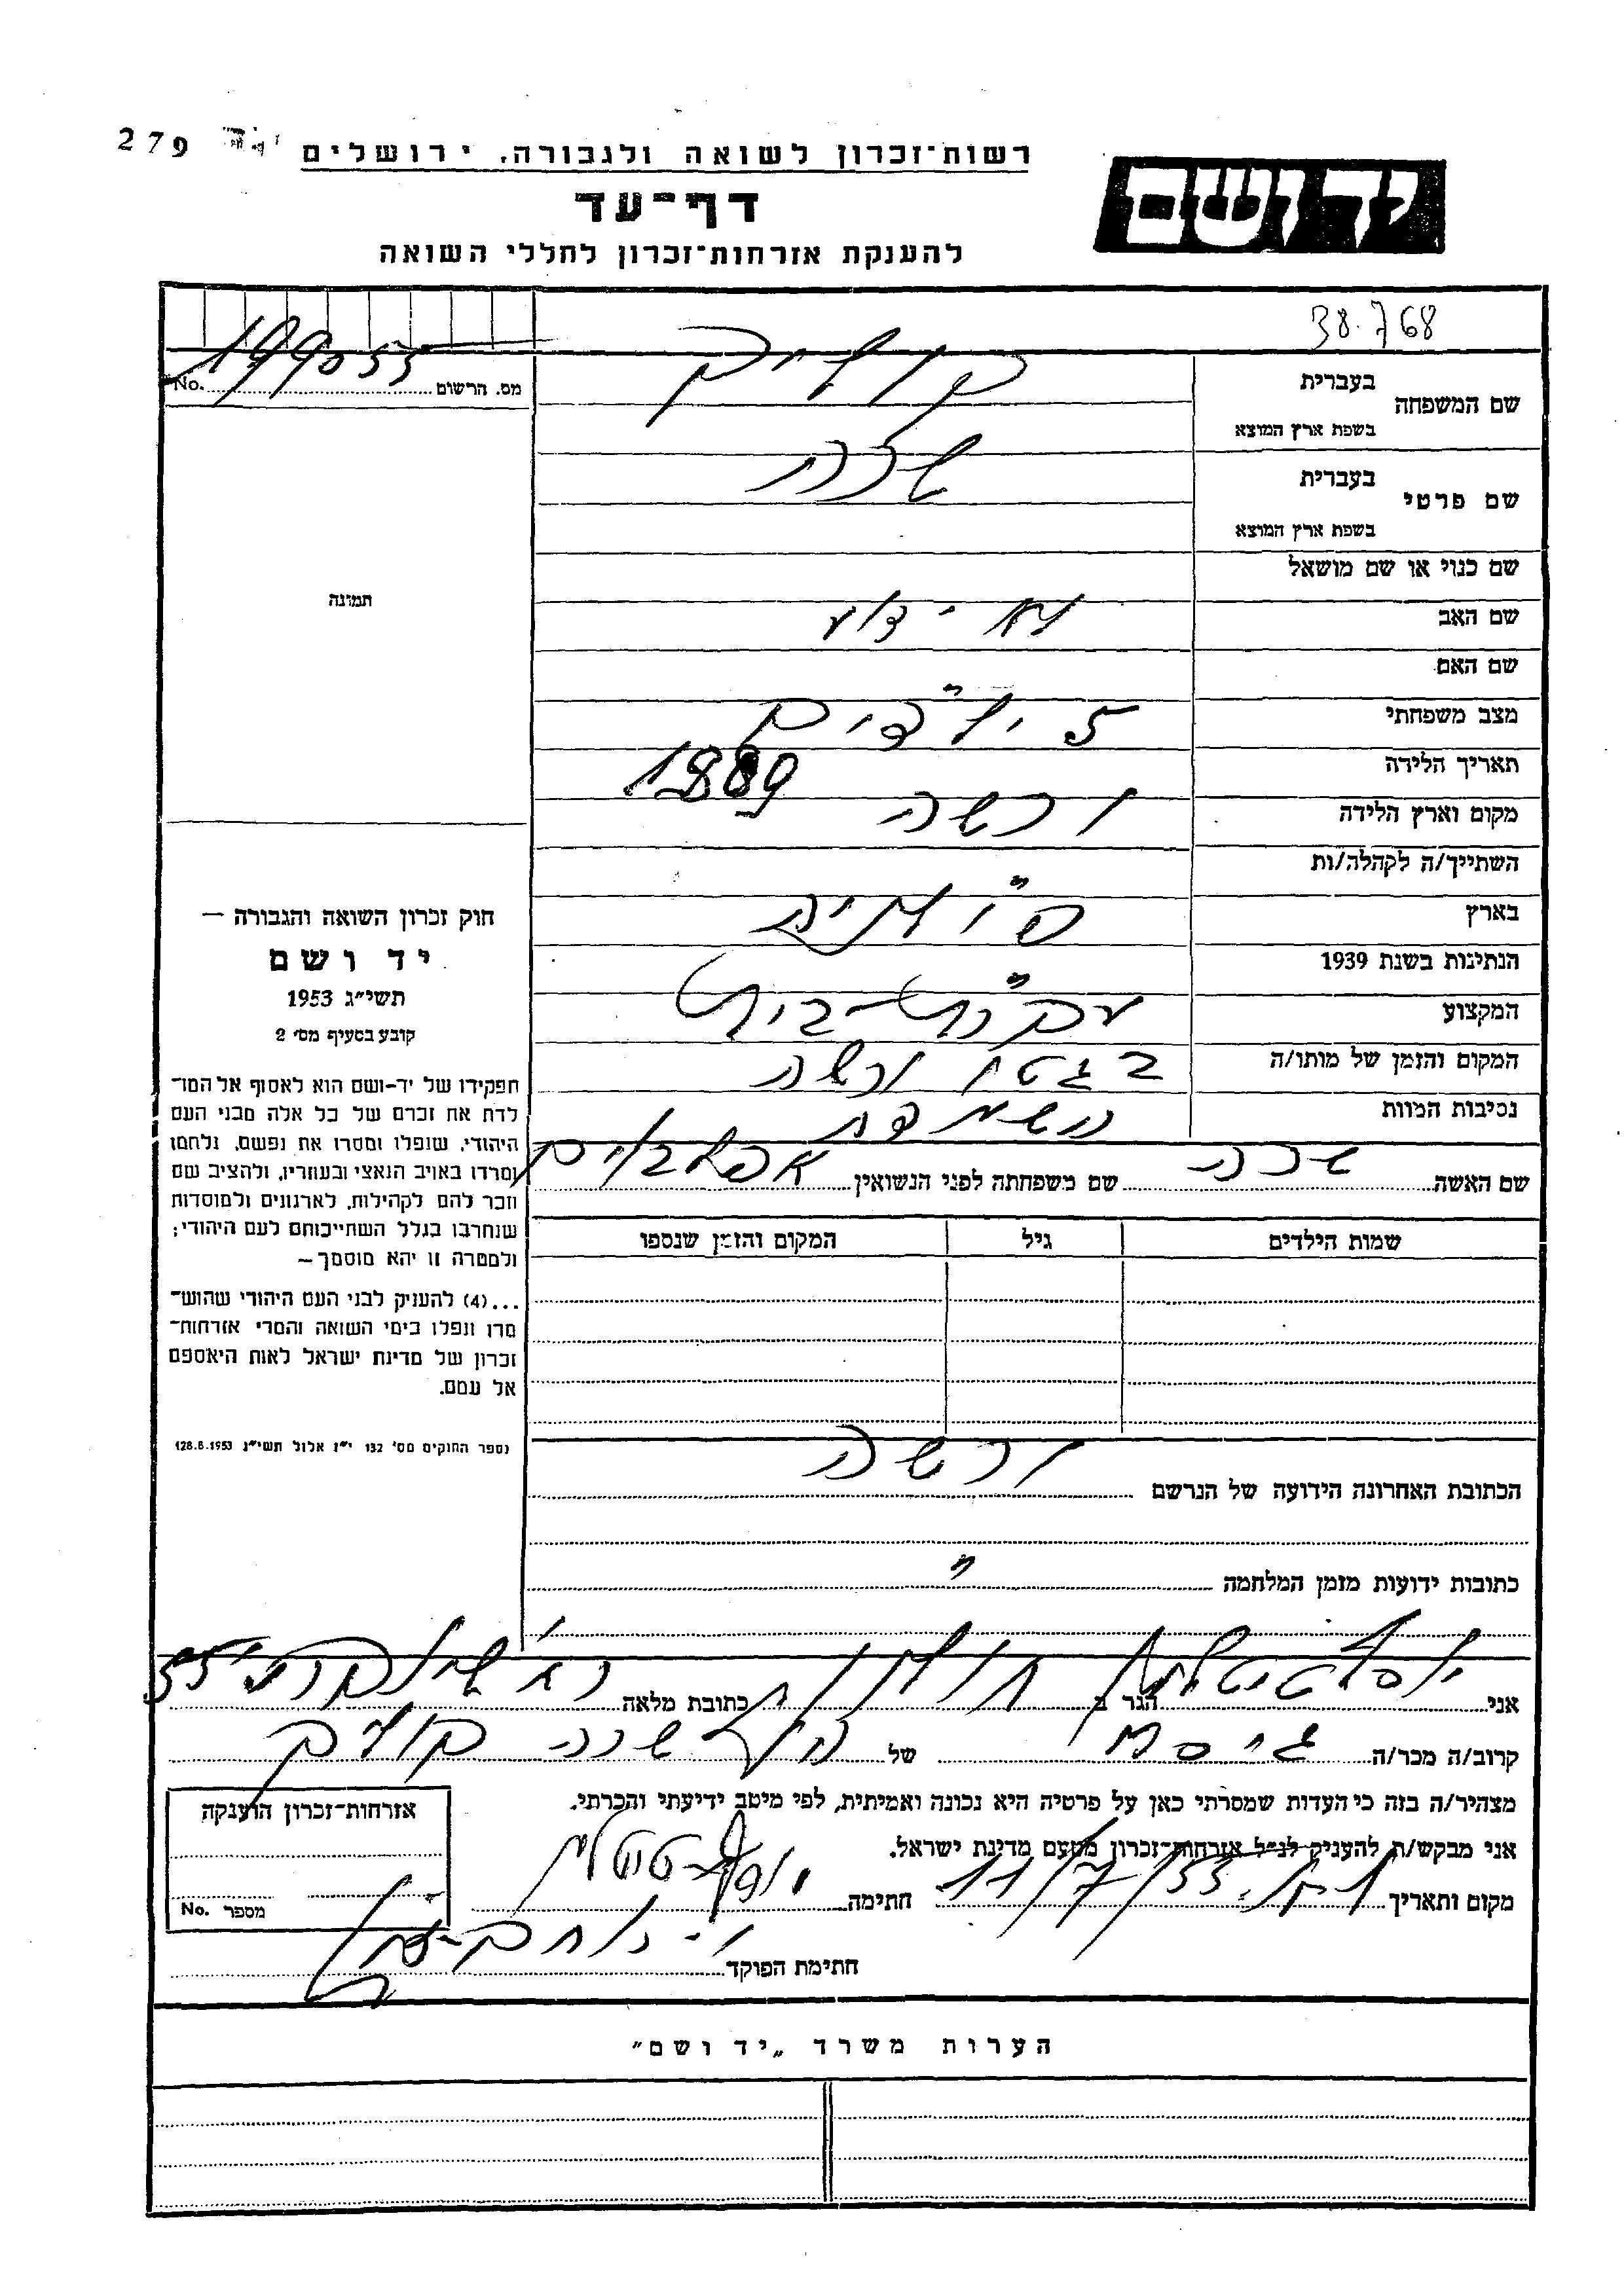 279
רשות־זכרון לשואה ולגבורה, ירושלים
יד ושם
דף־עד
להענקת אזרחות־זכרון לחללי השואה
38.768
מס. הרשום No. 199055
שם המשפחה
בעברית
בשפת ארץ המוצא
שם פרטי
בעברית שרה
בשפת ארץ המוצא
שם כנוי או שם מושאל
שם האב לא ידוע
שם האם "
מצב משפחתי 5 ילדים
תאריך הלידה 1889
מקום וארץ הלידה ורשה
השתייך/ה לקהלה/ות "
בארץ פולניה
הנתינות בשנת 1939 "
המקצוע עקרת־בית
המקום והזמן של מותו/ה בגטו ורשה
נסיבות המוות הושמדה
שם האשה שרה שם משפחתה לפני הנשואין
שמות הילדים גיל המקום והזמן שנספו
הכתובת האחרונה הידועה של הנרשם ורשה
כתובות ידועות מזמן המלחמה "
תמונה
חוק זכרון השואה והגבורה –
יד ושם
תשי"ג 1953
קובע בסעיף מס׳ 2
תפקידו של יד-ושם הוא לאסוף אל המו־
לדת את זכרם של כל אלה מבני העם
היהודי, שנפלו ומסרו את נפשם, נלחמו
ומרדו באויב הנאצי ובעוזריו, ולהציב שם
וזכר להם לקהילות, לארגונים ולמוסדות
שנחרבו בגלל השתייכותם לעם היהודי;
ולמטרה זו יהא מוסמך –
...(4) להעניק לבני העם היהודי שהוש־
מדו ונפלו בימי השואה והמרי אזרחות־
זכרון של מדינת ישראל לאות היאספם
אל עמם.
(ספר החוקים מס׳ 132 י"ז אלול תשי"ג 28.8.1953)
אני הגר ב חולון כתובת מלאה 55
קרוב/ה מכר/ה גיסה של שרה
מצהיר/ה בזה כי העדות שמסרתי כאן על פרטיה היא נכונה ואמיתית, לפי מיטב ידיעתי והכרתי.
אני מבקש/ת להעניק לנ"ל אזרחות־זכרון מטעם מדינת ישראל.
מקום ותאריך 11/7/55 חתימה
חתימת הפוקד
אזרחות־זכרון הוענקה
מספר No.
הערות משרד „יד ושם"